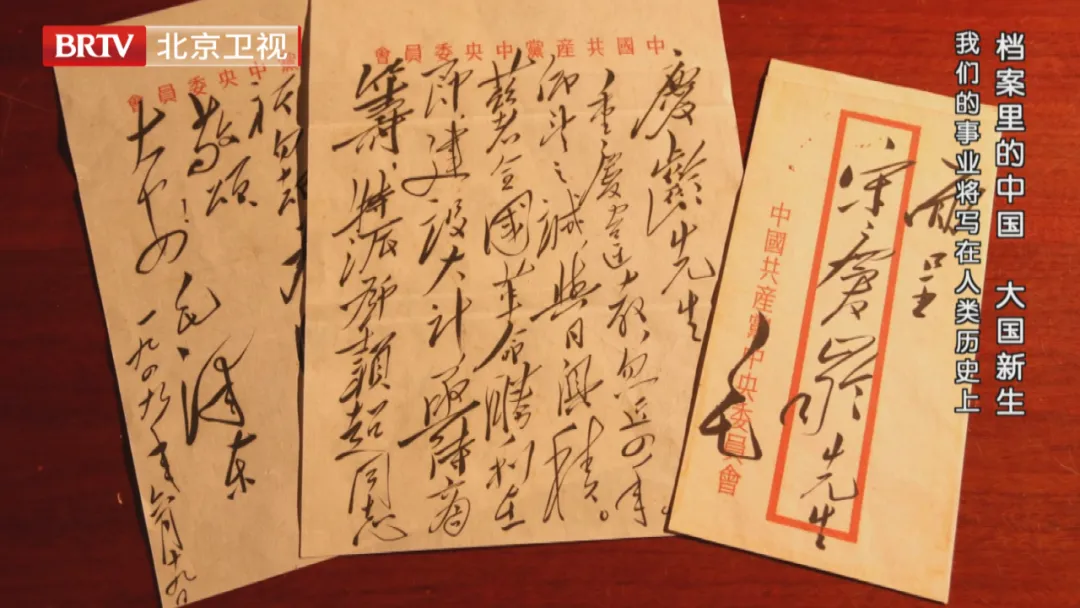 BRTV 北京卫视
档案里的中国 大国新生
我们的事业将写在人类历史上
面呈
宋慶齡先生
毛
中國共産黨中央委員會
中國共産黨中央委員會
慶齡先生
重慶違教，忽近四年。
仰望之誠，與日俱積。
兹者全國革命勝利在
即，建設大計，亟待商
籌，特派鄧穎超同志
黨中央委員會
祈勿却
敬頌
大安！
毛澤東
一九四九年六月十九日